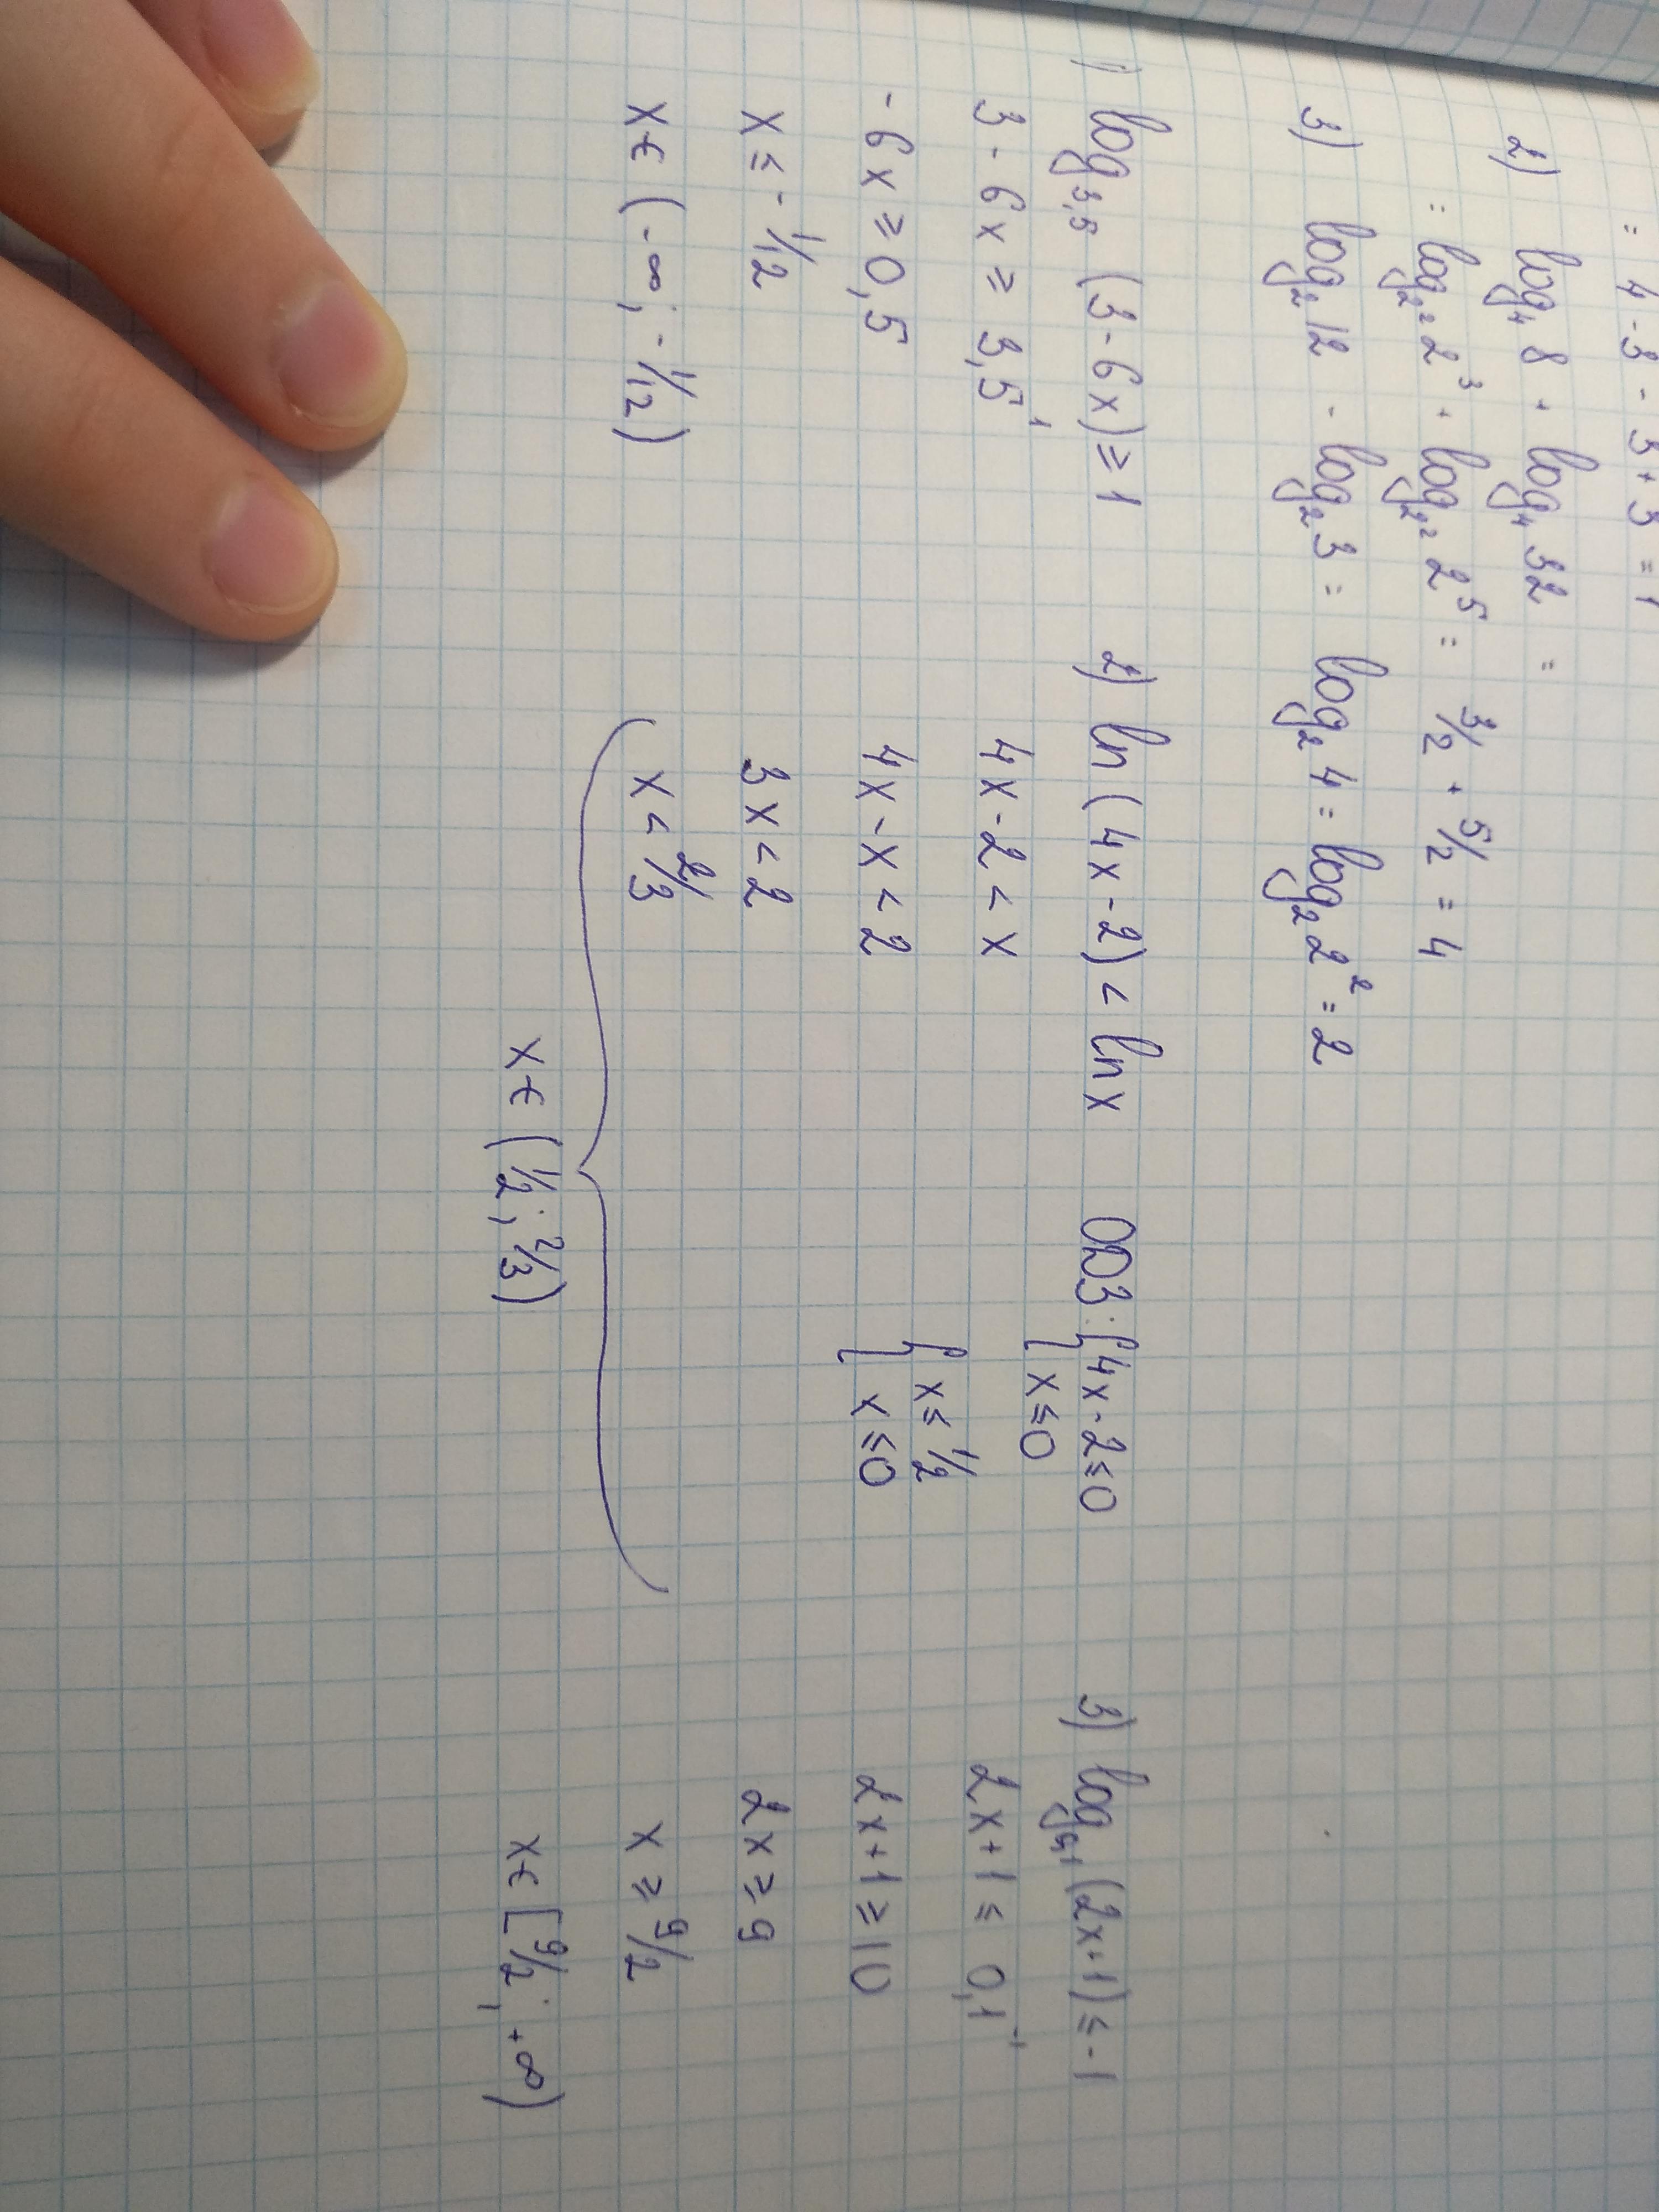 = 4 - 3 - 3 + 3 = 1
2) log₄ 8 + log₄ 32 =
= log₂² 2³ + log₂² 2⁵ = 3/2 + 5/2 = 4
3) log₂ 12 - log₂ 3 = log₂ 4 = log₂ 2² = 2
1) log₃,₅ (3 - 6x) ≥ 1
3 - 6x ≥ 3,5¹
- 6x ≥ 0,5
x ≤ - 1/12
x ∈ (-∞; -1/12)
2) ln (4x - 2) < ln x
4x - 2 < x
4x - x < 2
3x < 2
x < 2/3
ОДЗ: { 4x - 2 ≤ 0
x ≤ 0
{ x ≤ 1/2
x ≤ 0
x ∈ (1/2; 2/3)
3) log₀,₁ (2x + 1) ≤ -1
2x + 1 ≤ 0,1⁻¹
2x + 1 ≥ 10
2x ≥ 9
x ≥ 9/2
x ∈ [9/2; +∞)